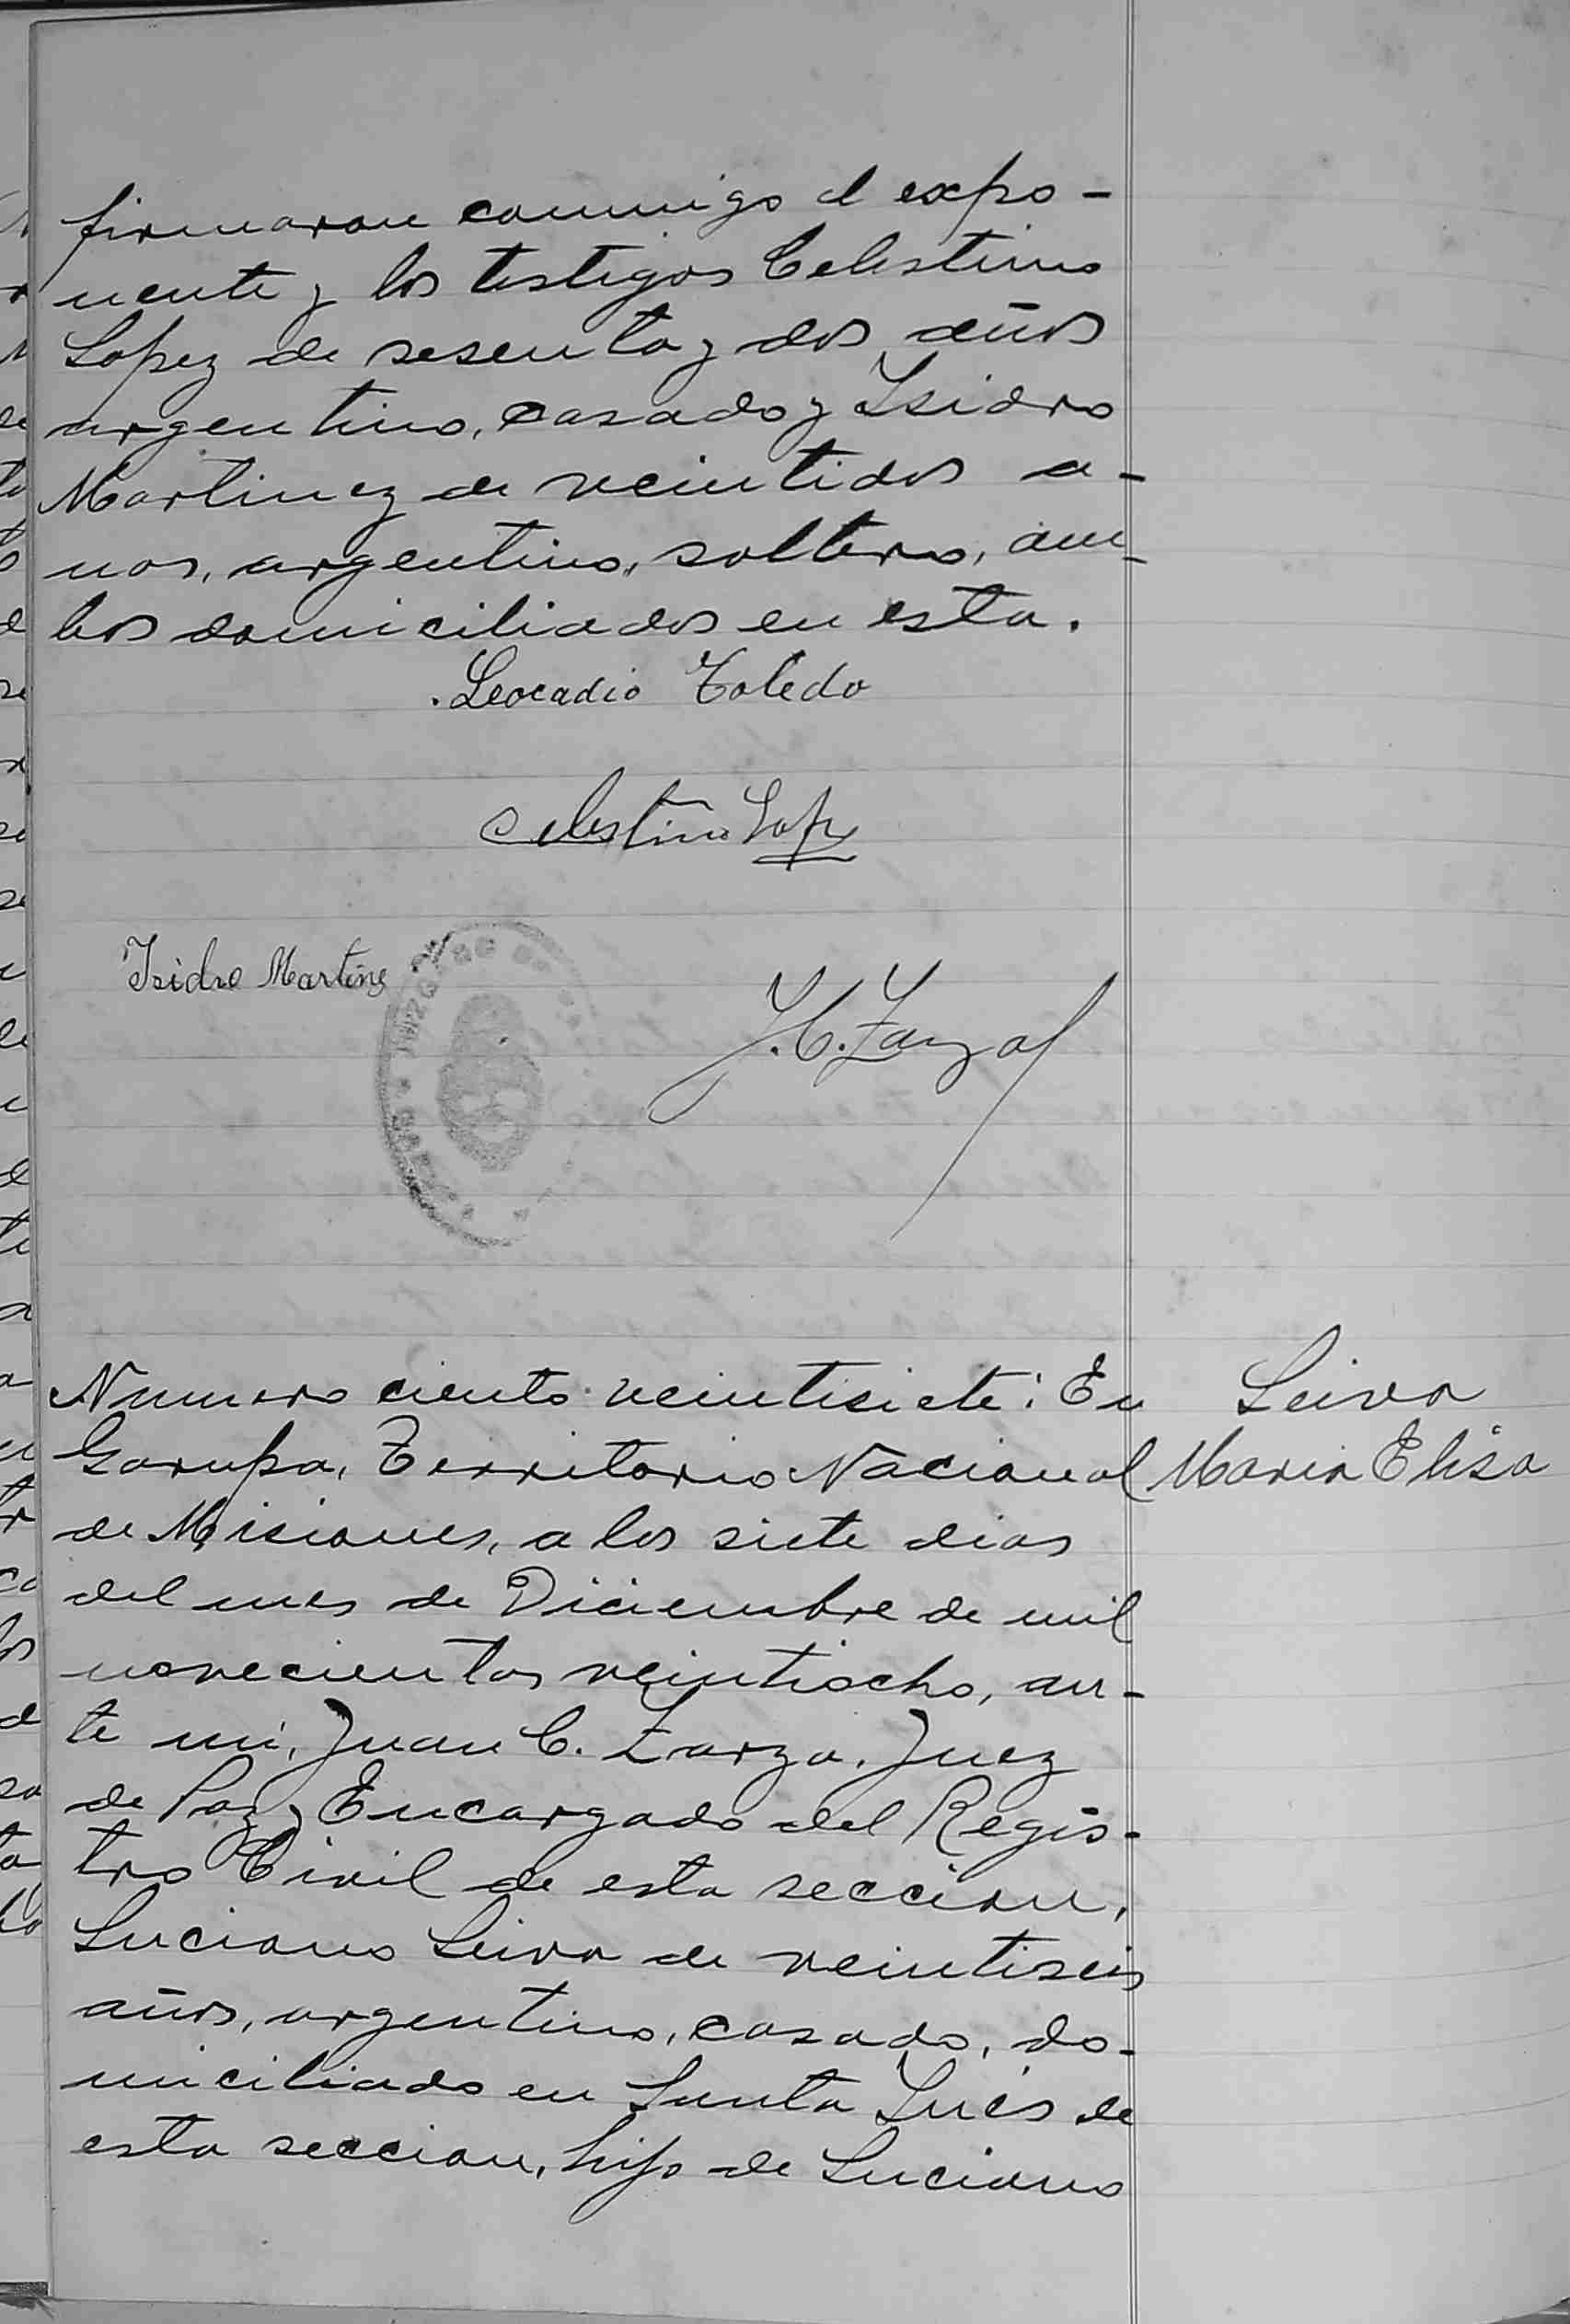 firmaron conmigo el expo-
nente y los testigos Celestino
Lopez de sesenta y dos años
argentino, casado y Isidro
Martinez de veintidos a-
nos, argentino, soltero, am-
bos domiciliados en esta.
Leocadio Toledo
Celestino Lopz
Isidro Martinez
J. C. Zarza
Numero ciento veintisiete: En
Garupa, Territorio Nacional
de Misiones, a los siete dias
del mes de Diciembre de mil
novecientos veintiocho, an-
te mi, Juan C. Zarza, Juez
de Paz y Encargado del Regis-
tro Civil de esta seccion,
Luciano Leiva de veintiseis
años, argentino, casado, do-
miciliado en Santa Inés de
esta seccion, hijo de Luciano
Leiva
Maria Elisa